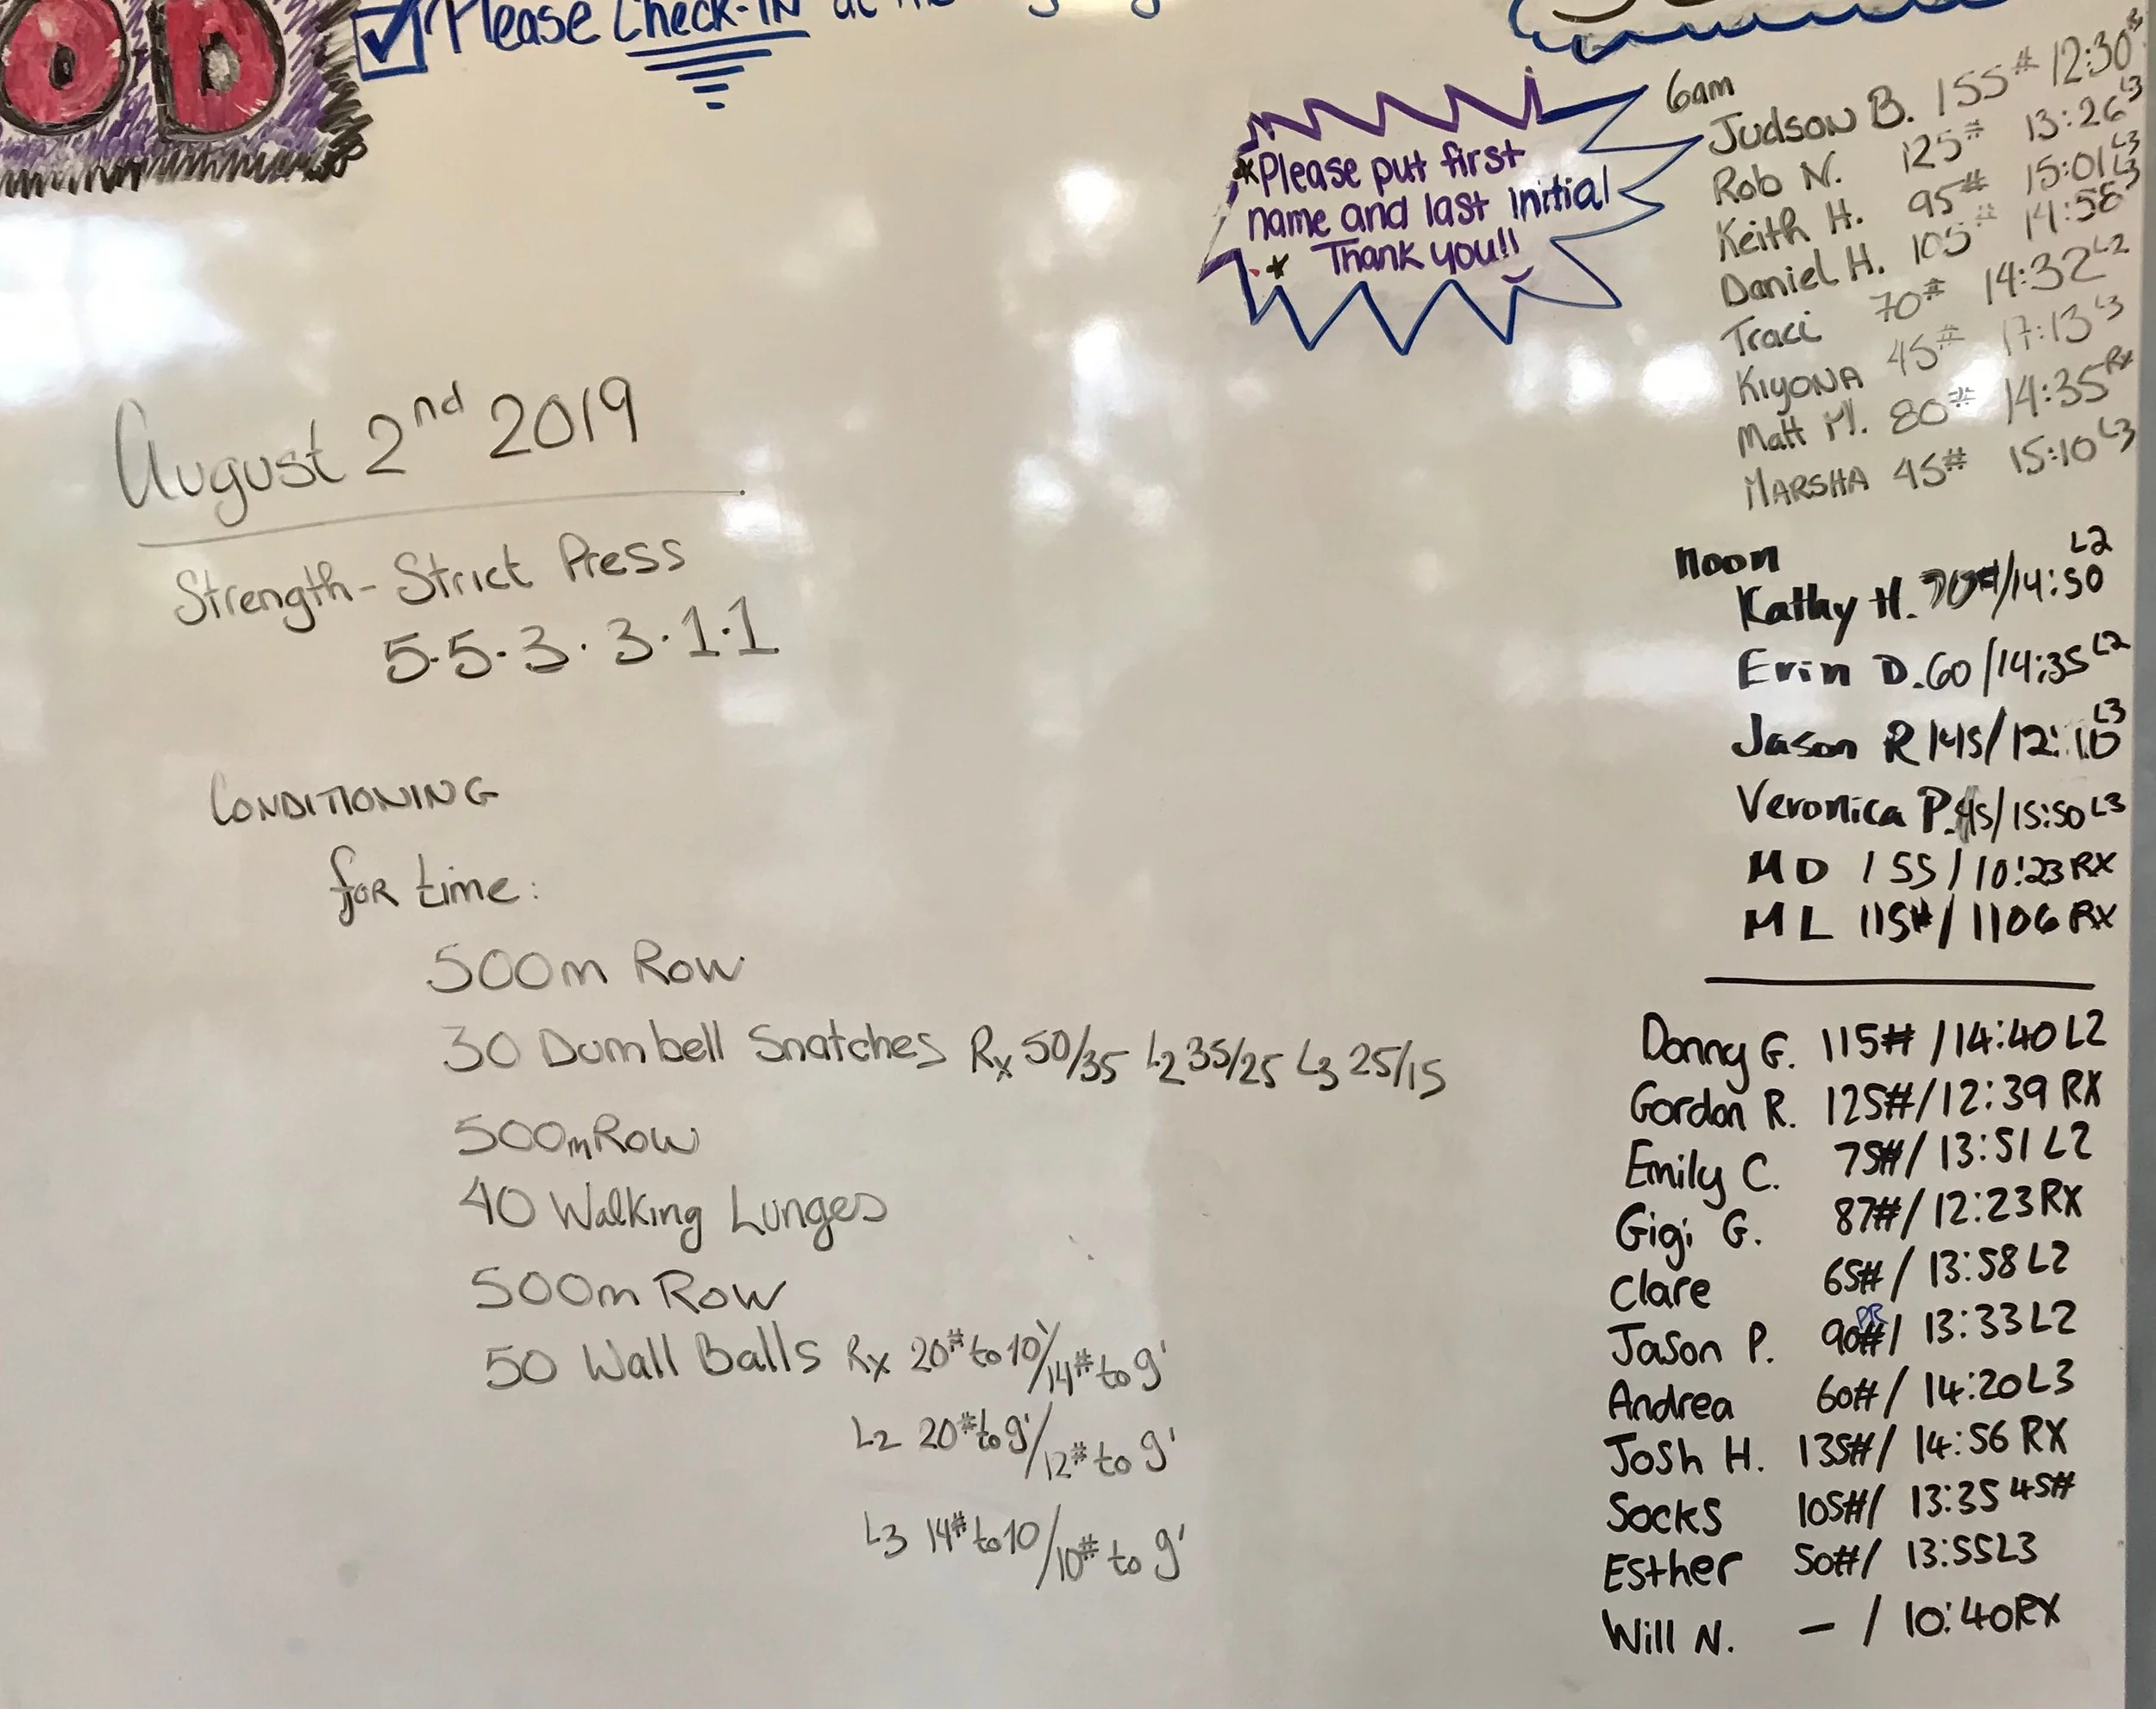 OD
Please Check-IN at
*Please put first
name and last initial
* Thank you!!
August 2nd 2019
Strength - Strict Press
5·5·3·3·1·1
CONDITIONING
for time:
500m Row
30 Dumbell Snatches Rx 50/35 L2 35/25 L3 25/15
500m Row
40 Walking Lunges
500m Row
50 Wall Balls Rx 20# to 10'/14# to 9'
L2 20# to 9'/12# to 9'
L3 14# to 10/10# to 9'
6am
Judson B. 155# 12:30
Rob N. 125# 13:26 L3
Keith H. 95# 15:01 L3
Daniel H. 105# 14:58 L3
Traci 70# 14:32 L2
KIYONA 45# 17:13 L3
Matt M. 80# 14:35 Rx
MARSHA 45# 15:10 L3
noon
Kathy H. 70#/14:50 L2
Erin D. 60/14:35 L2
Jason R 145/12:10 L3
Veronica P. 45/15:50 L3
MD 155/10:23 RX
ML 115#/1106 RX
Donny G. 115#/14:40 L2
Gordon R. 125#/12:39 RX
Emily C. 75#/13:51 L2
Gigi G. 87#/12:23 RX
Clare 65#/13:58 L2
Jason P. 90#/13:33 L2 PR
Andrea 60#/14:20 L3
Josh H. 135#/14:56 RX
Socks 105#/13:35 45#
Esther 50#/13:55 L3
Will N. –/10:40 RX